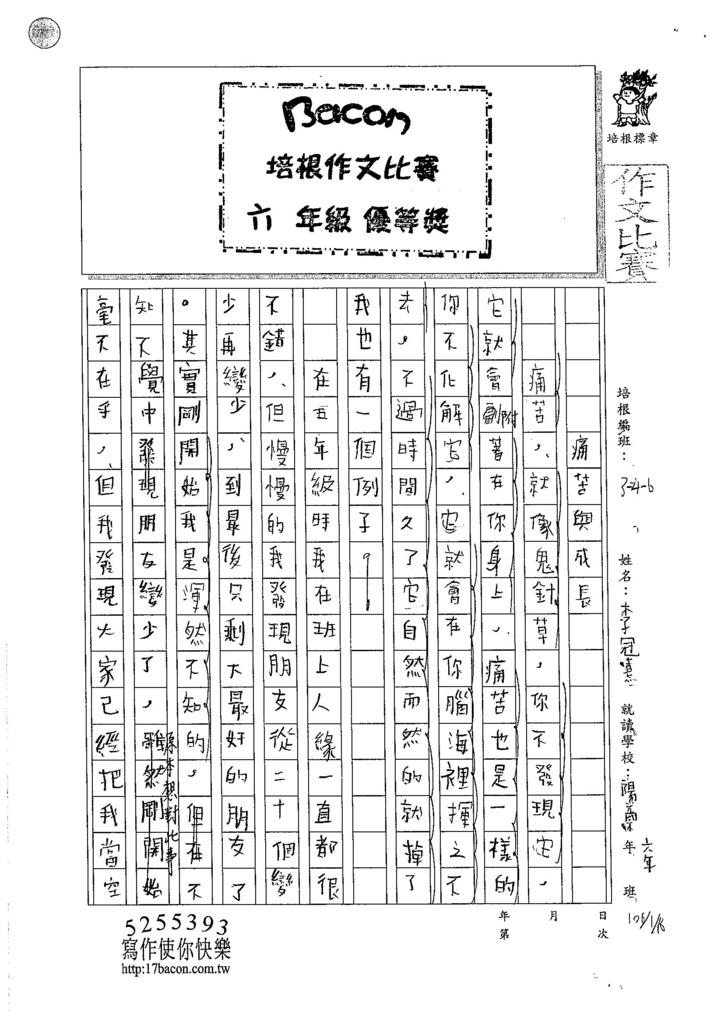 Bacon
培根作文比賽
六 年級 優等獎
培根標章
作文比賽
培根編班：3-4-6
姓名：李冠熹
就讀學校：陽
六年
年 班
105/1/16
年 月 日
第 次
痛苦與成長
痛苦，就像鬼針草，你不發現它，
它就會附著在你身上，痛苦也是一樣的
你不化解它，它就會在你腦海裡揮之不
去，不過時間久了它自然而然的就掉了
我也有一個例子。
在五年級時我在班上人緣一直都很
不錯，但慢慢的我發現朋友從二十個變
少再變少，到最後只剩大最好的朋友了
。其實剛開始我是渾然不知的，但在不
知不覺中發現朋友變少了，雖然剛開始
毫不在乎，但我發現大家已經把我當空
5255393
寫作使你快樂
http:17bacon.com.tw